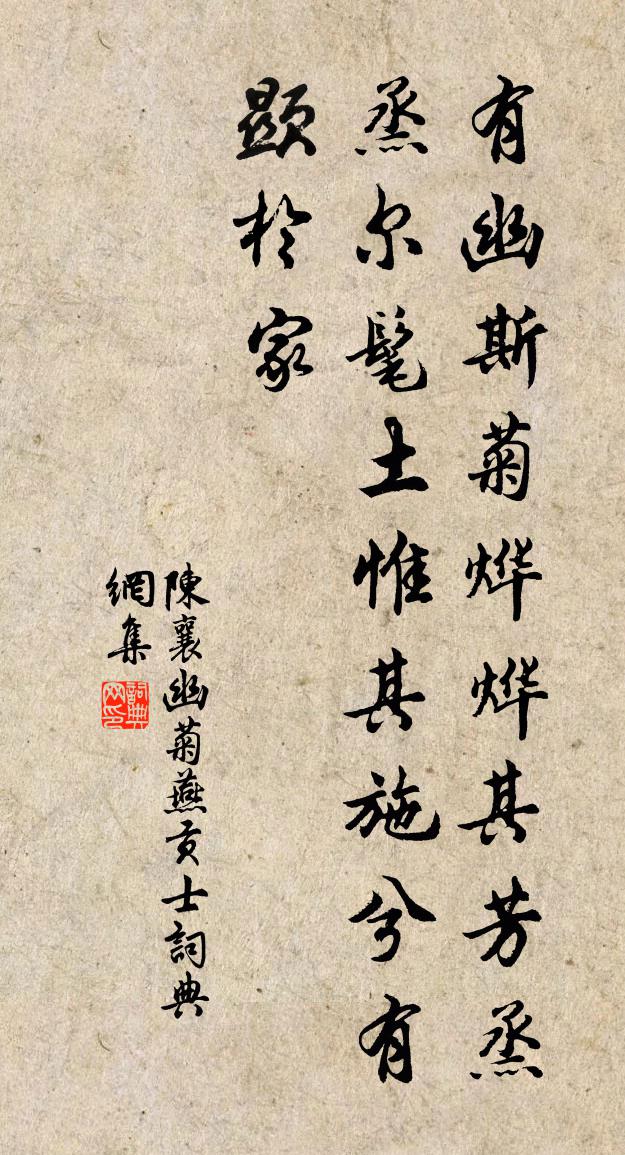 有幽斯菊烨烨其芳烝
烝尔髦土惟其施兮有
顯於家
陳襄幽菊燕貢士詞典
網集
詞典
网印